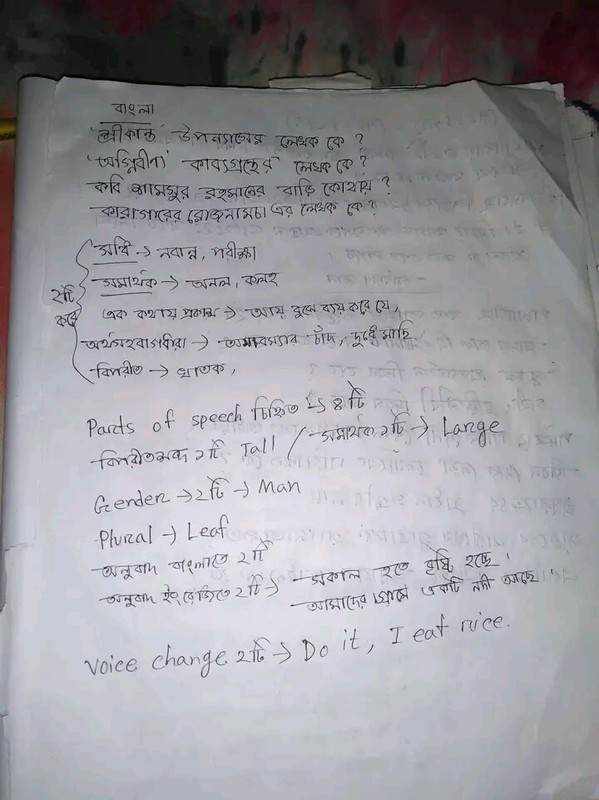 বাংলা
'শ্রীকান্ত' উপন্যাসের লেখক কে ?
'অগ্নিবীণা' কাব্যগ্রন্থের লেখক কে ?
কবি শামসুর রহমানের বাড়ি কোথায় ?
কারাগারের রোজনামচা এর লেখক কে ?
২টি করে
সন্ধি → নবান্ন, পরীক্ষা
সমার্থক → অনল, কলহ
এক কথায় প্রকাশ → আয় বুঝে ব্যয় করে যে,
অর্থসহ বাগধারা → অমাবস্যার চাঁদ, দুধে মাছি
বিপরীত → ঘাতক,
Parts of speech চিহ্নিত → ৪টি
বিপরীতশব্দ ২টি Tall / সমার্থক ২টি → Large
Gender → ২টি → Man
Plural → Leaf
অনুবাদ বাংলাতে ২টি
অনুবাদ ইংরেজিতে ২টি → সকাল হতে বৃষ্টি হচ্ছে '
আমাদের গ্রামে একটি নদী আছে '
voice change ২টি → Do it, I eat rice.